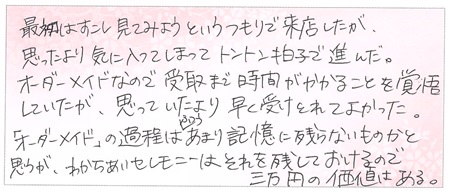 最初はすこし見てみようというつもりで来店したが、
思ったより気に入ってしまってトントン拍子で進んだ。
オーダーメイドなので受取まで時間がかかることを覚悟
していたが、思っていたより早く受けとれてよかった。
「オーダーメイド」の過程はふつうあまり記憶に残らないものかと
思うが、わかちあいセレモニーはそれを残しておけるので
三万円の価値はある。